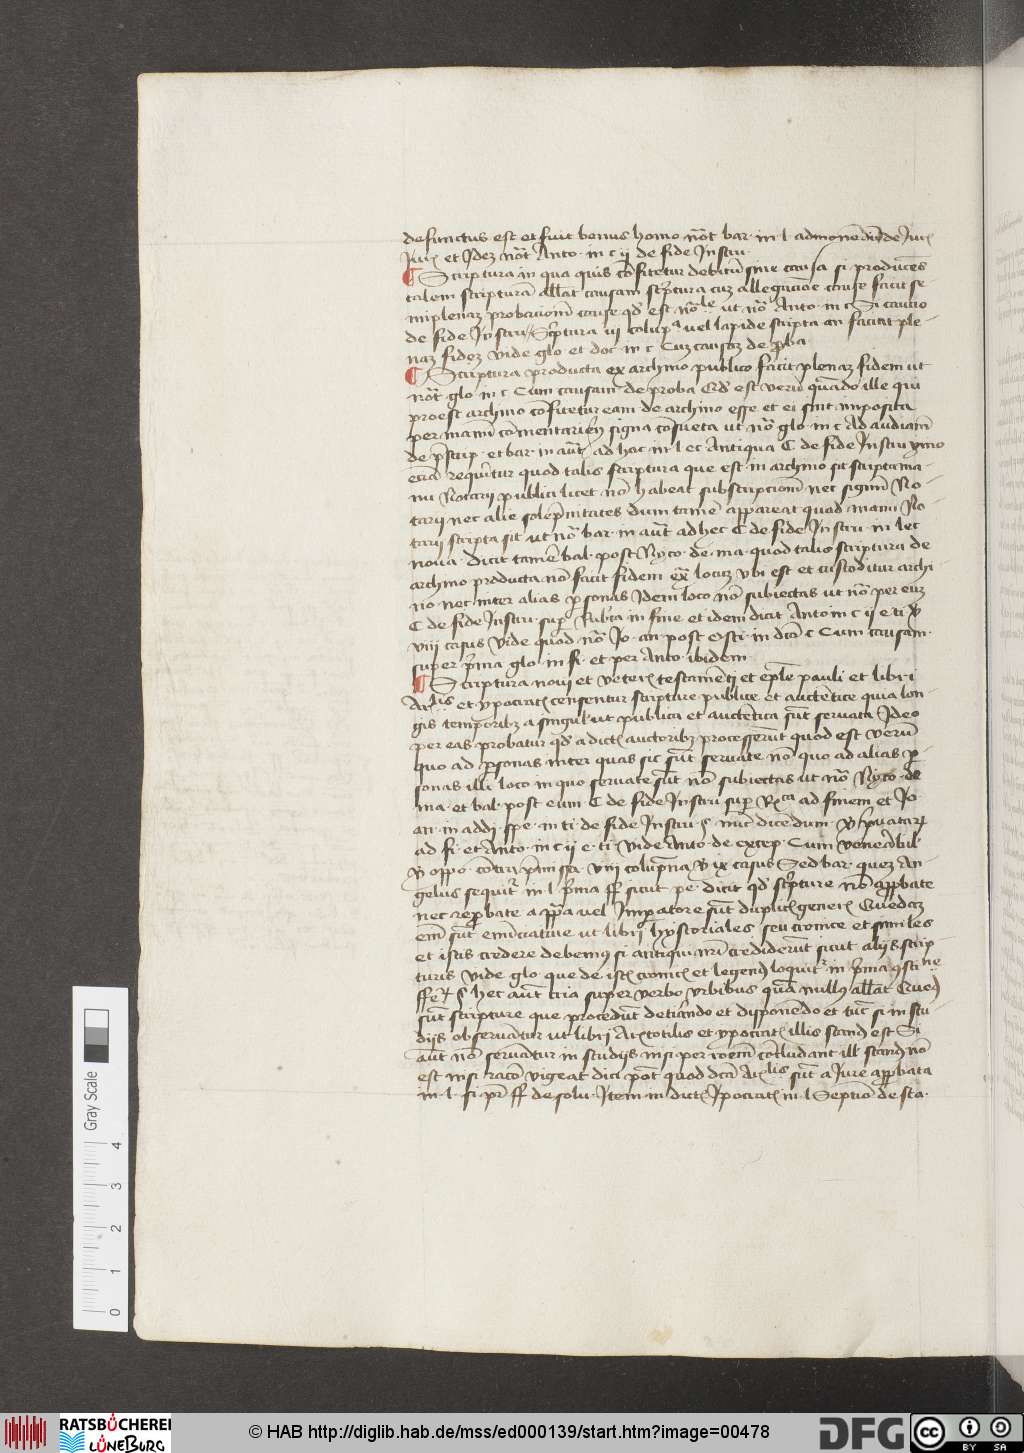 defunctus est et fuit bonus homo not bar in l admonendi de Jure
Jur et Idez not Anto in c ij de fide Instru
Scriptura in qua quis cofitetur debitu sine causa si producens
talem scriptura allat causam scptura cuz allegacioe cause facit se
miplenaz probacionem cause qd est no ut no Anto in c Si caucio
de fide Instru Scptura in colupa vel lapide scripta an faciat ple
naz fidez vide glo et doc in c Cuz causaz de proba
Scriptura producta ex archivo publico facit plenaz fidem ut
not glo in c Cum causam de proba Qd est veru quado ille qui
preest archivo cofitetur eam de archivo esse et ei sint imposita
per manu comentarien signa cosueta ut no glo in c Ad audiam
de pscrip et bar in aut ad hec in l ec Antiqua C de fide Instru ymo
ecia requiritur quod talis scriptura que est in archivo sit scripta ma
nu Notarij publici licet no habeat subscripcionem nec signum No
tarij nec alie solepnitates dum tame appareat quod manu No
tarij scripta sit ut no bar in aut ad hec C de fide Instru in lec
nova Dicit tame bal post Nyco de ma quod talis scriptura de
archivo producta no facit fidem ex locuz ubi est et custoditur archi
vo nec inter alias psonas Idem loco no subiectas ut no per euz
C de fide Instru sup Rubca in fine et idem dicit Anto in c ij e ti
viij casus vide quod no Jo an post osti in dco c Cum causam
super pma glo in fi et per Anto ibidem
Scriptura novi et veteris testamenti et eple pauli et libri
Arlis et ypocratis censentur scripture publice et autentice quia lon
gis temporibz a singulis ut publica et autentica sut servata Ideo
per eas probatur qd a dictis auctoribz processerut quod est veru
quo ad psonas inter quas sic sut servate no quo ad alias p
sonas illi loco in quo servate sut no subiectas ut no Nyco de
ma et bal post eum C de fide Instru sup Rca ad finem et Jo
an in addi spe in ti de fide Instru § nuc dicendum
ad fi et Anto in c ij e ti vide Anto de excep Cum venerabil
oppo contra viij colupna ix casus Sed bar quez An
gelus sequitur in l pma ff sicut pe dicit qd scpture no approbate
nec reprobate a papa vel Impatore sut duplicis generis Quedaz
eni sut enuciative ut libri hystoriales seu cronice et similes
et istis credere debemus si antiqui viri crediderut sicut alijs scrip
turis vide glo que de istis cronicis et legendis loquitur in pma
ff § hec aut tria super verbo urbibus qua nullus allat Qued
sut scripture que procedut determinando et disponendo et tuc si in stu
dijs observatur ut libri Aristotilis et ypocratis illis standum est Si
aut no servatur in studijs nisi per racoem cocludant illis standum no
est nisi raco vigeat dici pot quod dca Arlis sut a Jure approbata
in l si pr ff de solu Item in dictis Ipocratis in l Septio de sta
0 1 2 3 4
Gray Scale
RATSBÜCHEREI
LÜNEBURG
© HAB http://diglib.hab.de/mss/ed000139/start.htm?image=00478
DFG
cc
BY SA